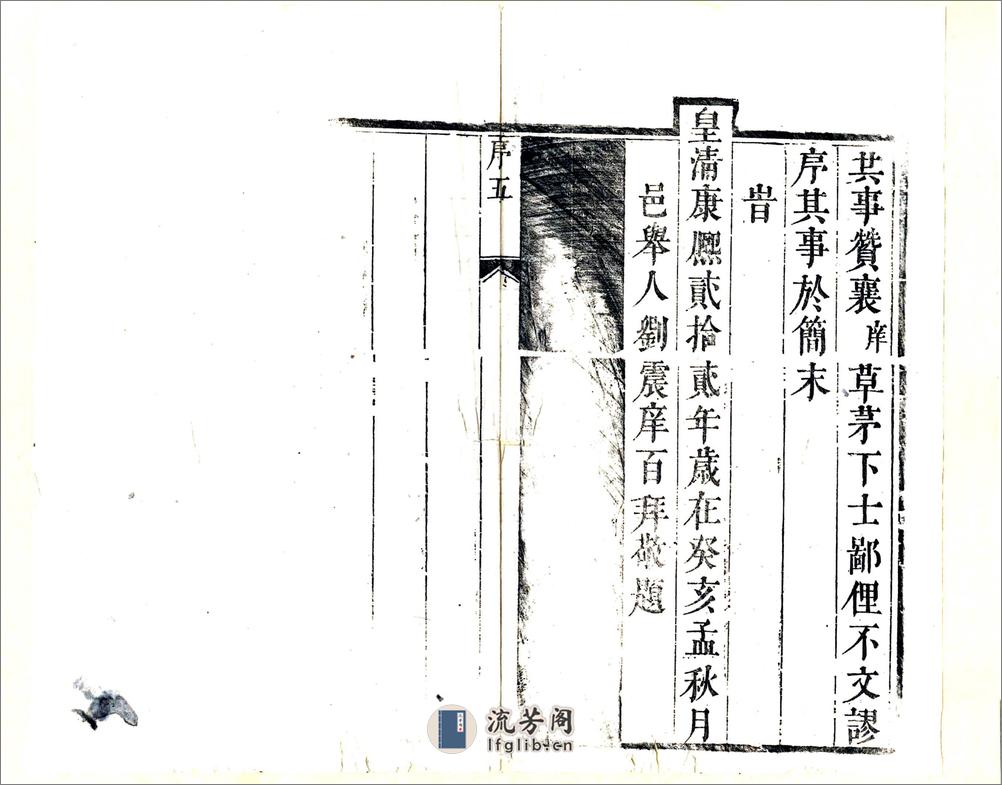 共事贊襄庠草茅下士鄙俚不文謬
序其事於簡末
旹
皇淸康熈貳拾貳年歲在癸亥孟秋月
邑舉人劉震庠百拜敬題
序五
流芳阁
lfglib.cn